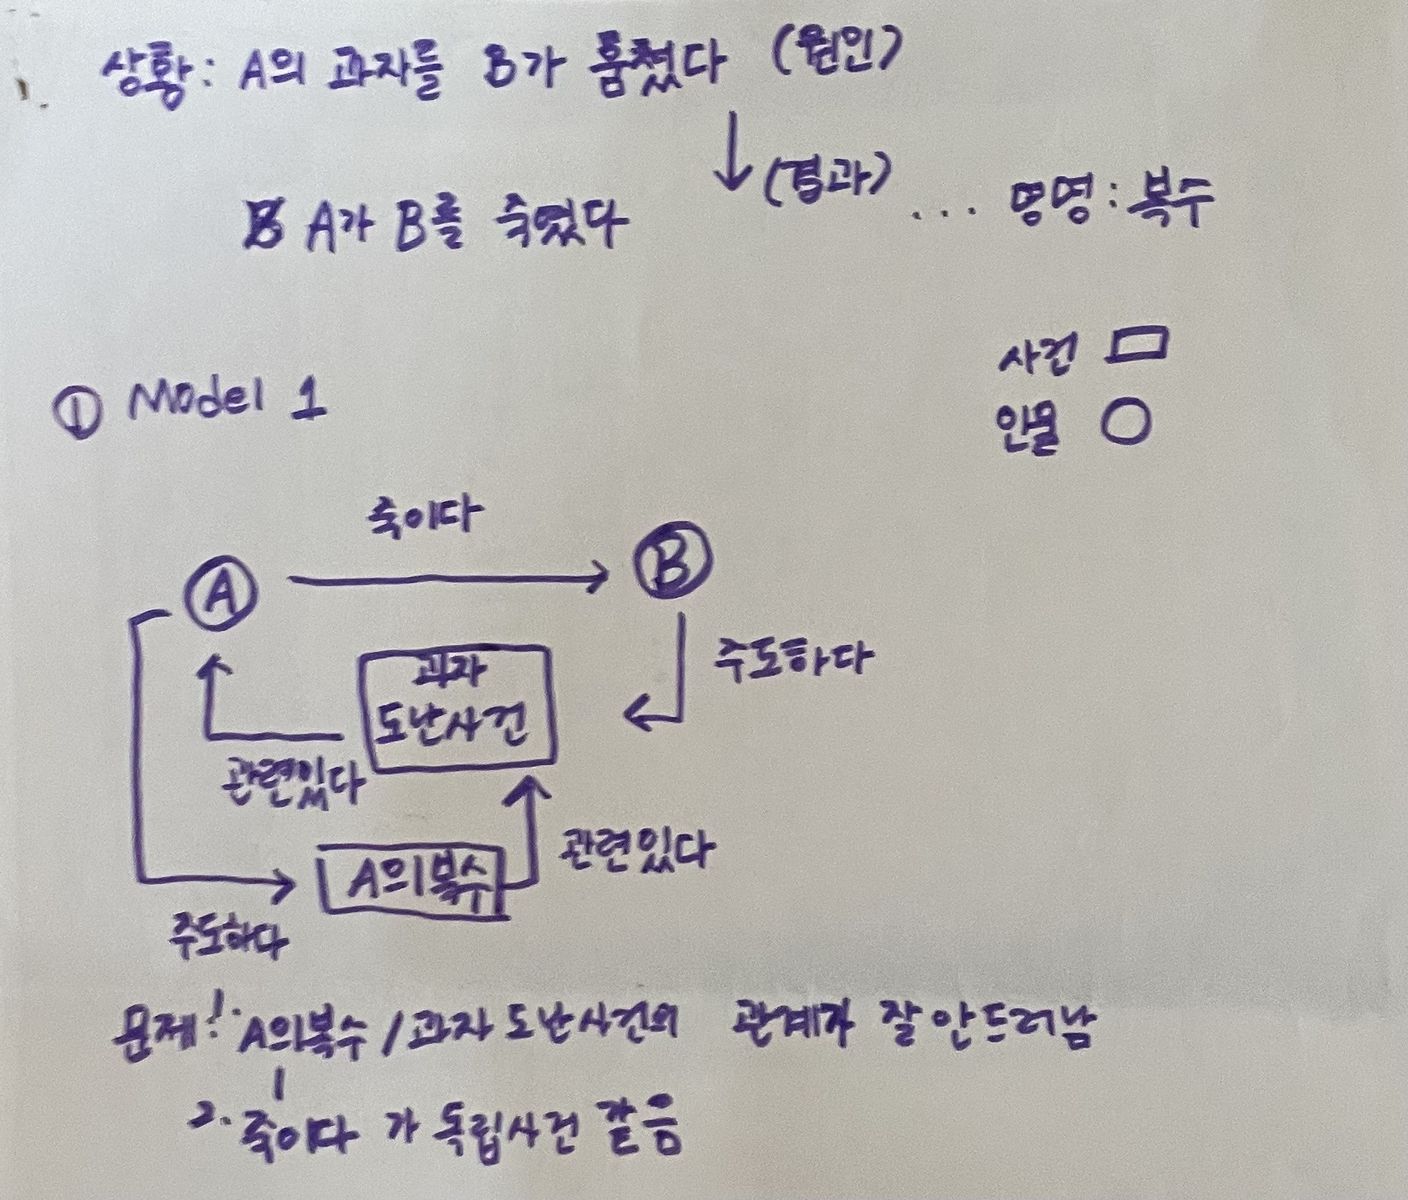 상황: A의 과자를 B가 훔쳤다 (원인)
(결과)
A가 B를 죽였다
... 명명: 복수
사건
인물
① Model 1
죽이다
A
B
주도하다
과자
도난사건
관련있다
관련있다
A의복수
주도하다
문제! 1. A의복수 / 과자 도난사건의 관계가 잘 안드러남
2. 죽이다 가 독립사건 같음